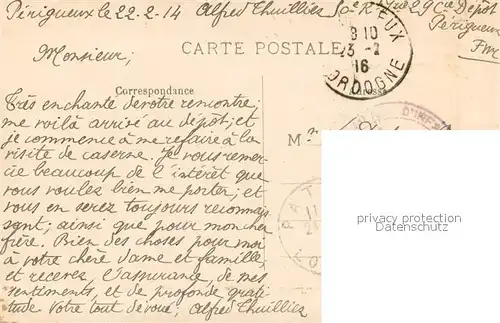 Périgueux le 22.2.14 Alfred Thuillies
29e Dépôt
Périgueux
CARTE POSTALE
EUX
8 10
23 -2
16
DORDOGNE
Monsieur,
Correspondance
Très enchanté de votre remontre;
me voilà arrivé au dépot; et
je commence à me refaire à la
visite de caserne. Je vous remer-
cie beaucoup de l'intéret que
vous voulez bien me porter; et
vous en serez toujours reconnais
sant; ainsi que pour mon cher
frère. Bien des choses pour moi
à votre chère dame et famille,
et recevez l'assurance de mes
sentiments, et de profonde grati
tude Votre tout dévoué; Alfred Thuillies
M
privacy protection
Datenschutz